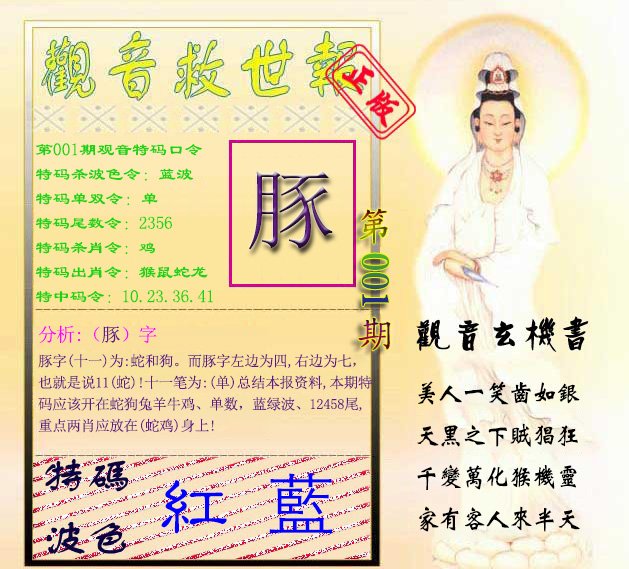 觀音救世報
正版
第001期观音特码口令
特码杀波色令：蓝波
特码单双令：单
特码尾数令：2356
特码杀肖令：鸡
特码出肖令：猴鼠蛇龙
特中码令：10.23.36.41
豚
第001期
分析:（豚）字
豚字(十一)为:蛇和狗。而豚字左边为四,右边为七，
也就是说11(蛇)!十一笔为:(单)总结本报资料,本期特
码应该开在蛇狗兔羊牛鸡、单数，蓝绿波、12458尾,
重点两肖应放在(蛇鸡)身上!
特碼
波色
紅 藍
觀音玄機書
美人一笑齒如銀
天黑之下賊猖狂
千變萬化猴機靈
家有客人來半天